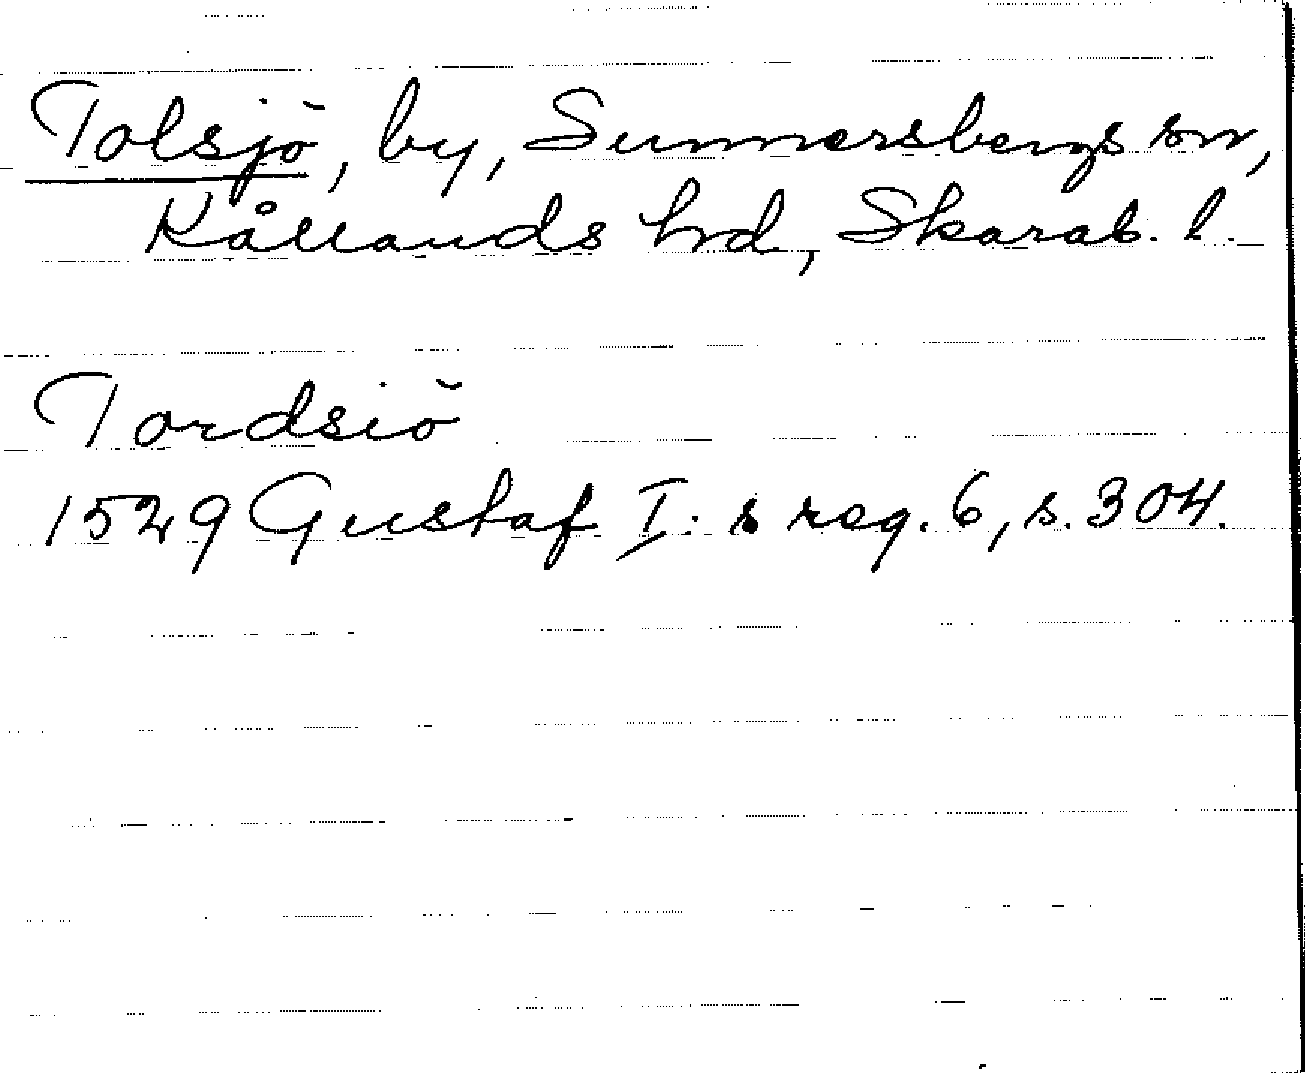 Tolsjö, by, Sunnersbergs sn,
Kållands hd, Skarab. l.
Tordsiö
1529 Gustaf I:s reg. 6, s. 304.